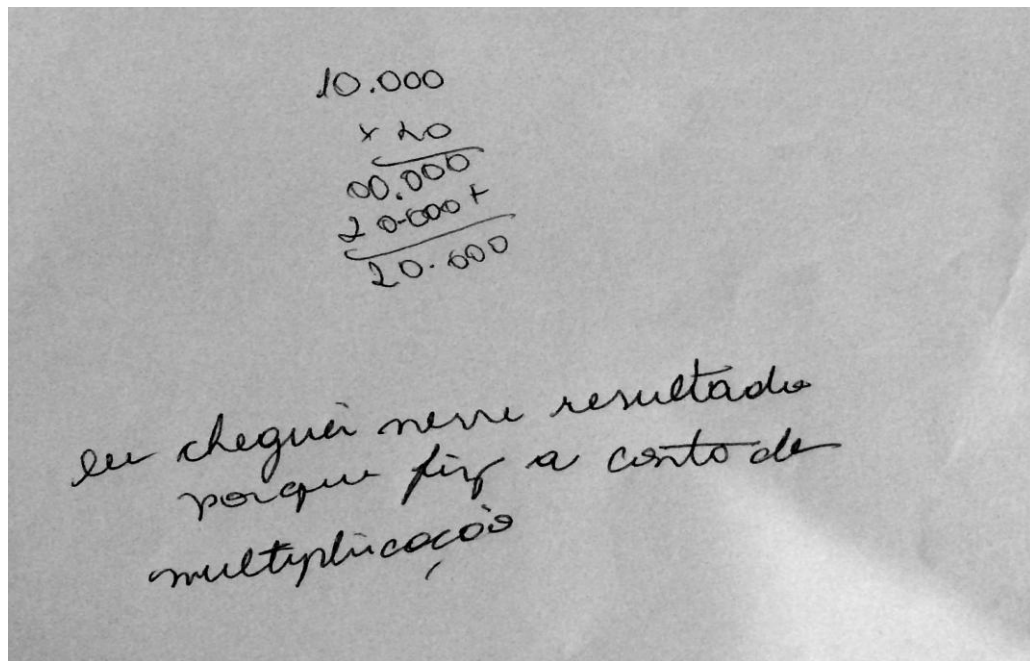 10.000
x 20
00.000
20.000+
20.000
eu cheguei nesse resultado
porque fiz a conto de
multiplicação